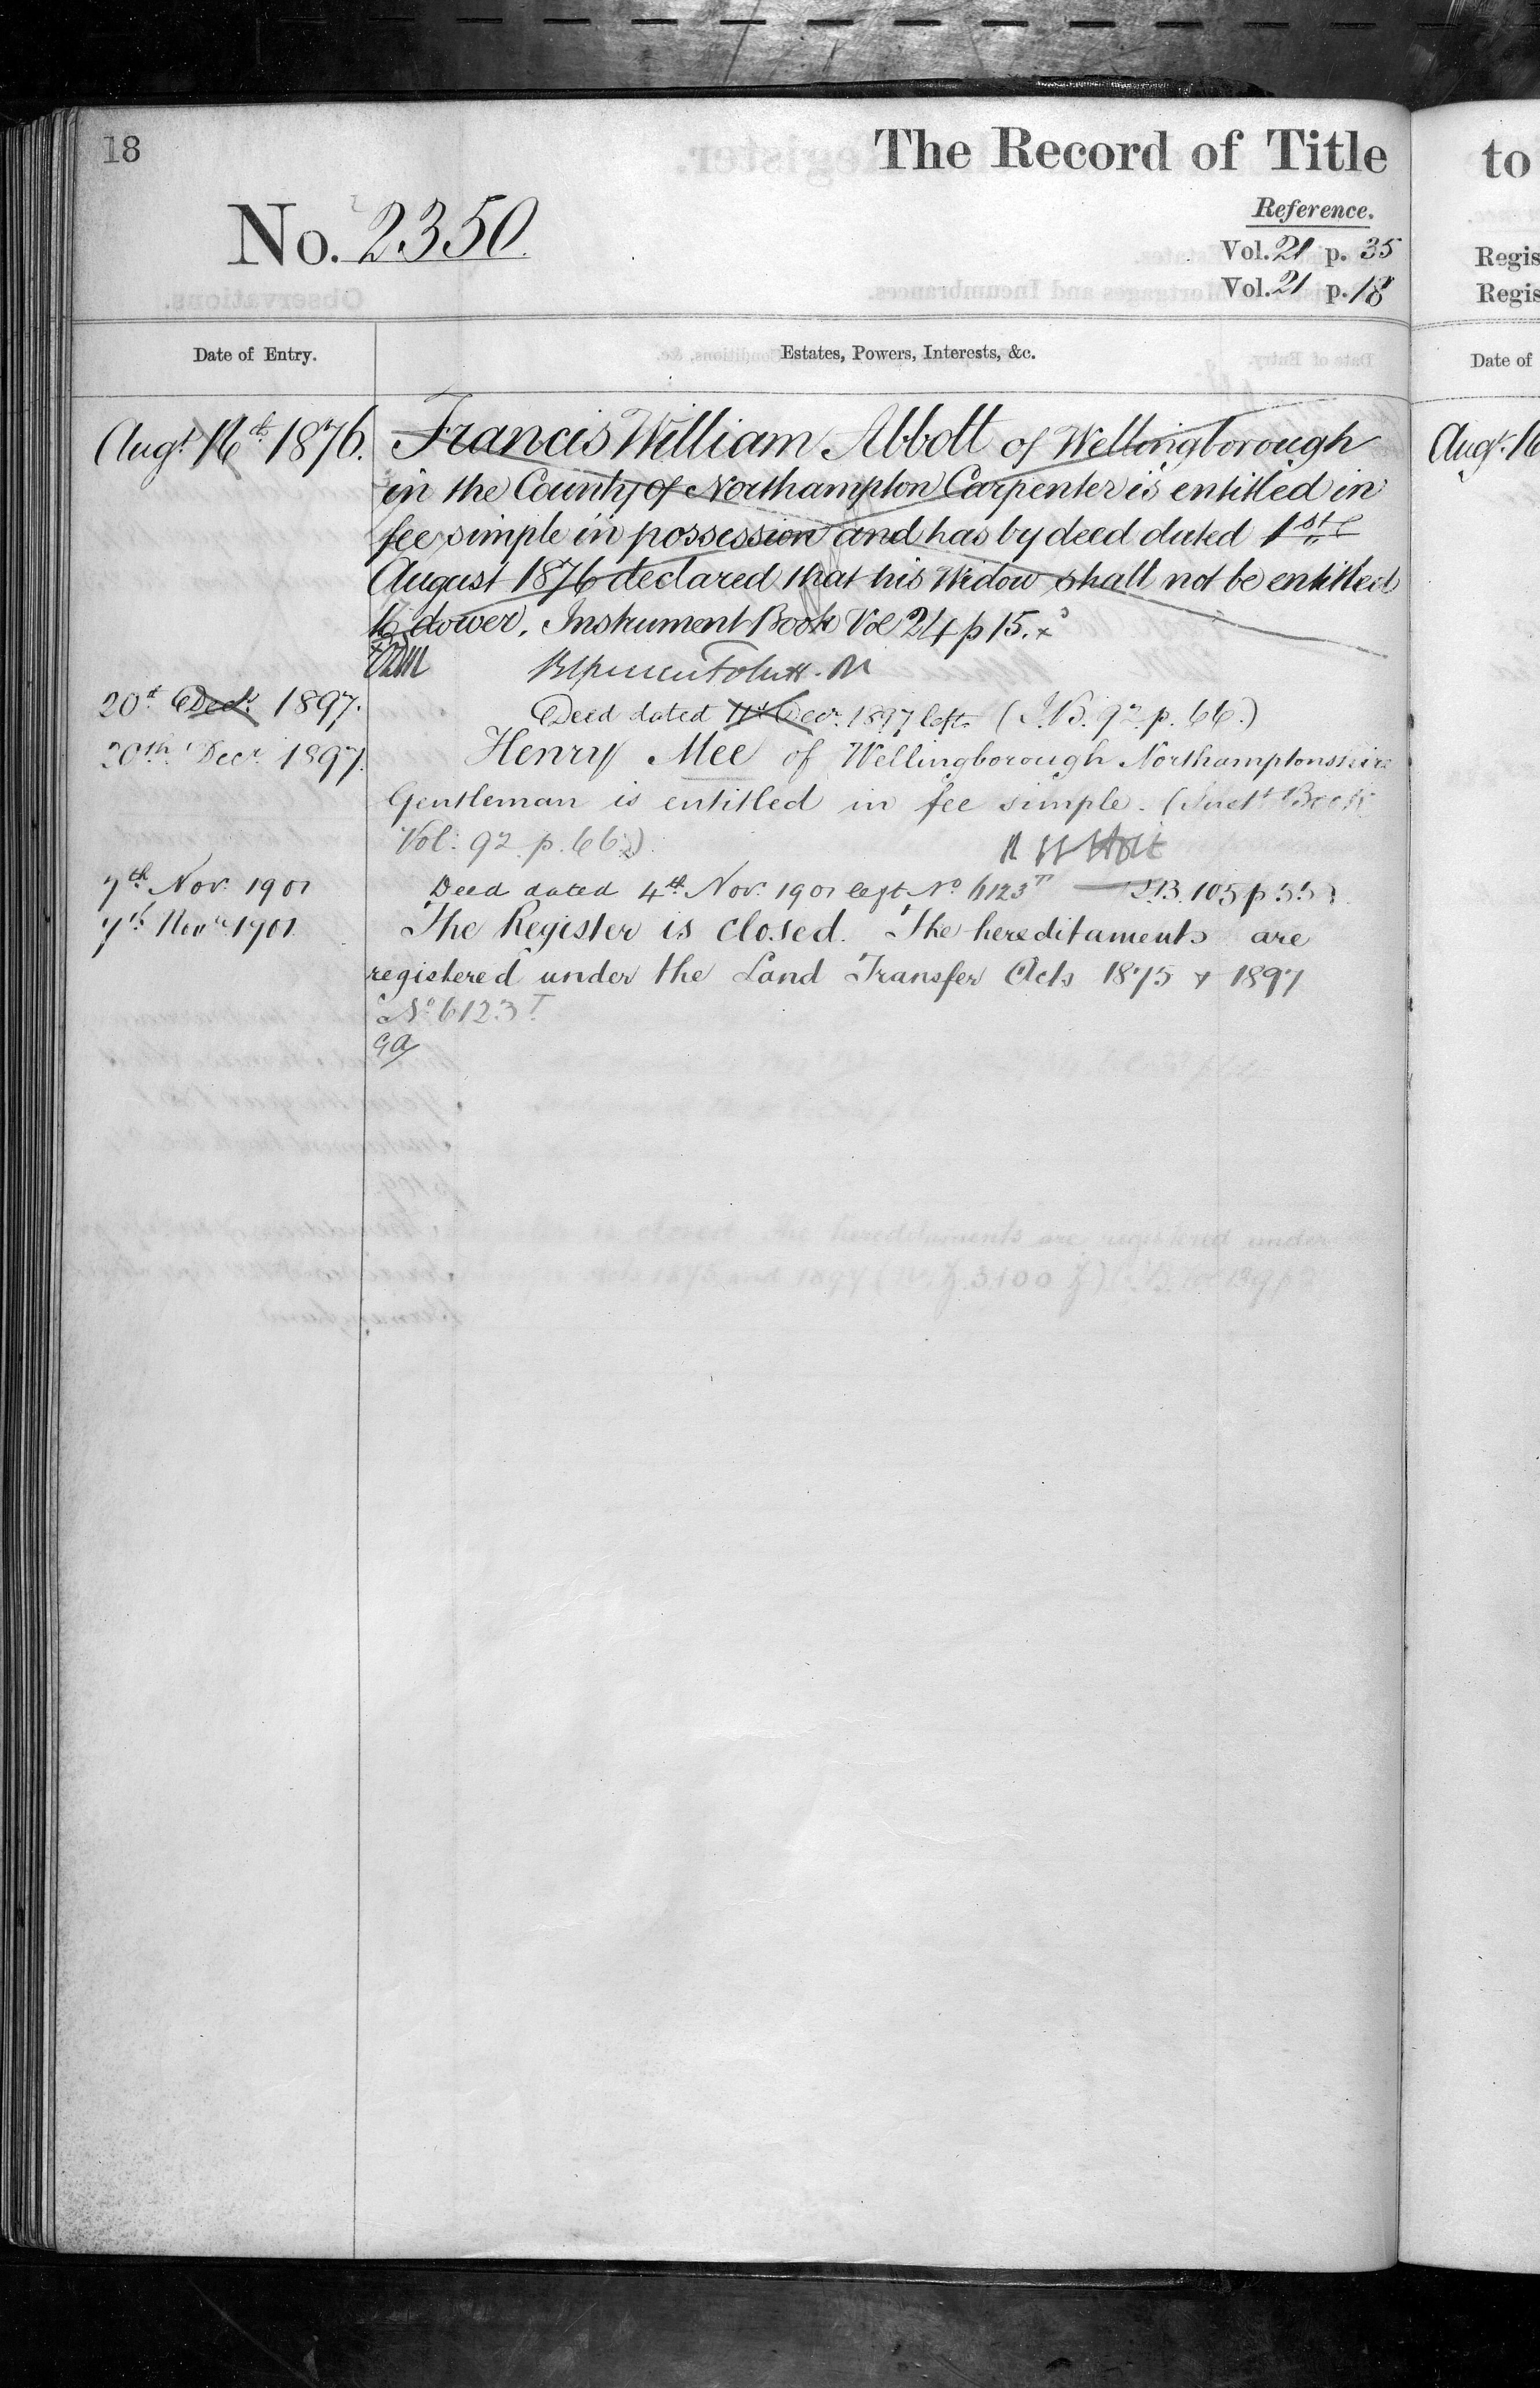 18
The Record of Title
to
Reference.
No. 2350.
Vol. 21 p. 35
Vol. 21 p. 18
Regis
Regis
Date of Entry.
Estates, Powers, Interests, &c.
Date of
Augt. 16th 1876. Francis William Abbott of Wellingborough
Augt. 16
in the County of Northampton Carpenter is entitled in
fee simple in possession and has by deed dated 1st
August 1876 declared that his Widow shall not be entitled
to dower. Instrument Book Vol 24 p 15.
20th Decr. 1897. Deed dated Decr. 1897 left (I.B. 92 p. 66.)
20th Decr. 1897. Henry Mee of Wellingborough Northamptonshire
Gentleman is entitled in fee simple. (Instt. Book
Vol: 92 p. 66.)
7th Nov. 1901 Deed dated 4th Nov. 1901 left No. 6123T I.B. 105 p 55
7th Novr. 1901 The Register is closed. The hereditaments are
registered under the Land Transfer Acts 1875 & 1897
No. 6123T